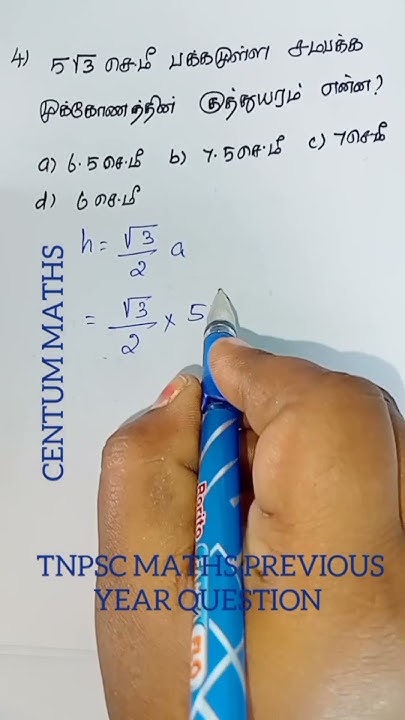 4) 5√3 செ.மீ பக்கமுள்ள சமபக்க
முக்கோணத்தின் குத்துயரம் என்ன?
a) 6.5செ.மீ b) 7.5செ.மீ c) 7செ.மீ
d) 6 செ.மீ
h = √3/2 a
= √3/2 × 5
CENTUM MATHS
TNPSC MATHS PREVIOUS
YEAR QUESTION